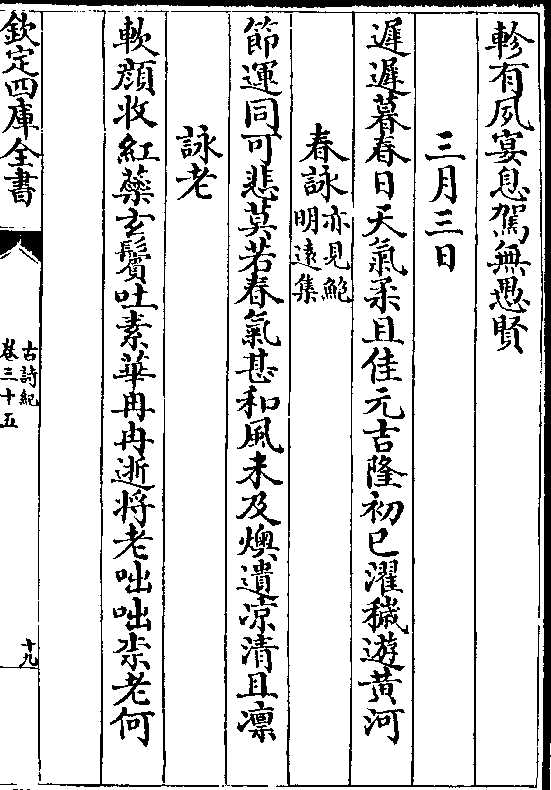 軫有夙宴息駕無愚賢
三月三日
遲遲暮春日天氣柔且佳元吉隆初巳濯穢遊黄河
春詠亦見鮑明遠集
節運同可悲莫若春氣甚和風未及燠遺凉清且凛
詠老
軟顔收紅蘂玄鬢吐素華冉冉逝将老咄咄柰老何
欽定四庫全書
古詩紀
卷三十五
十九